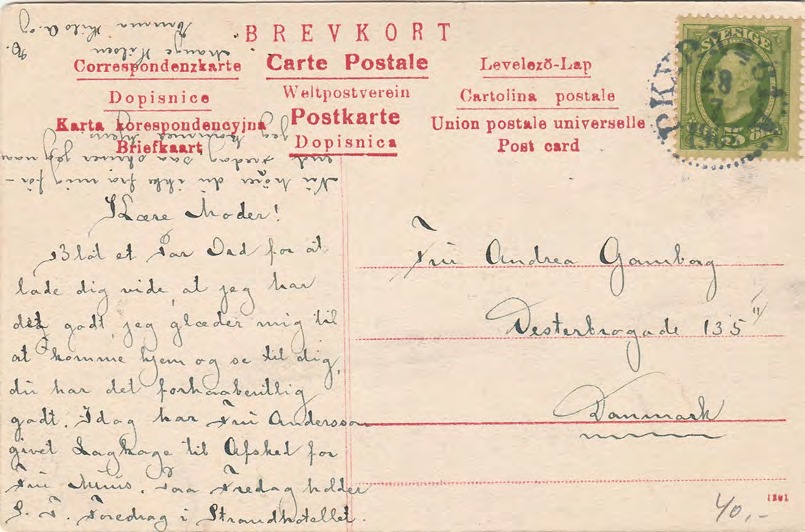 BREVKORT
Correspondenzkarte
Carte Postale
Levelező-Lap
Dopisnice
Weltpostverein
Cartolina postale
Karta korespondencyjna
Postkarte
Union postale universelle
Briefkaart
Dopisnica
Post card
SVERIGE
5
28
7
Kære Moder!
Blot et Par Ord for at
lade dig vide, at jeg har
det godt, jeg glæder mig til
at komme hjem og se til dig,
du har det forhaabentlig
godt. Idag har Fru Andersson
givet Lagkage til Afsked for
Fru Muus. Paa Fredag holder
S. F. Foredrag i Strandhotellet.
Nu hører du ikke fra mig før-
end Fredag saa skriver jeg naar
jeg kommer hjem
Mange Hilsen
Fru Andrea Gamborg
Vesterbrogade 135"
Danmark
1201
40,-